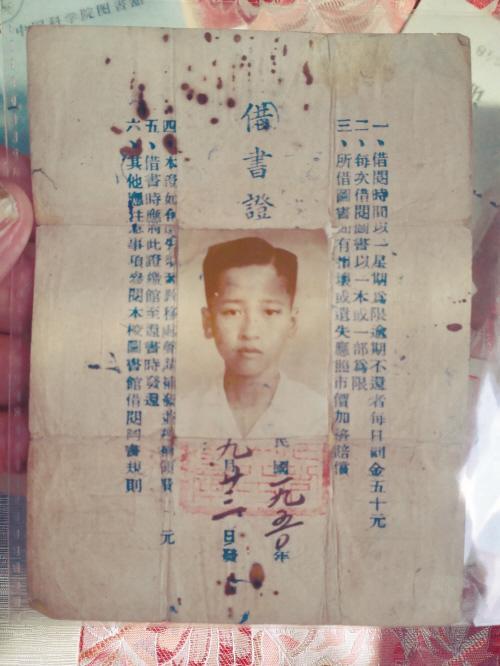 中国科学院图书馆
借書證
一、借閱時間以一星期爲限逾期不還者每日罰金五十元
二、每次借閱圖書以一本或一部爲限
三、所借圖書如有損壞或遺失應照市價加倍賠償
四、本證如有遺失聲請補發元
五、借書時應將此證繳館至還書時發還
六、其他應注意事項參閱本校圖書館借閱圖書規則
民國一九五〇年
九月廿二日發